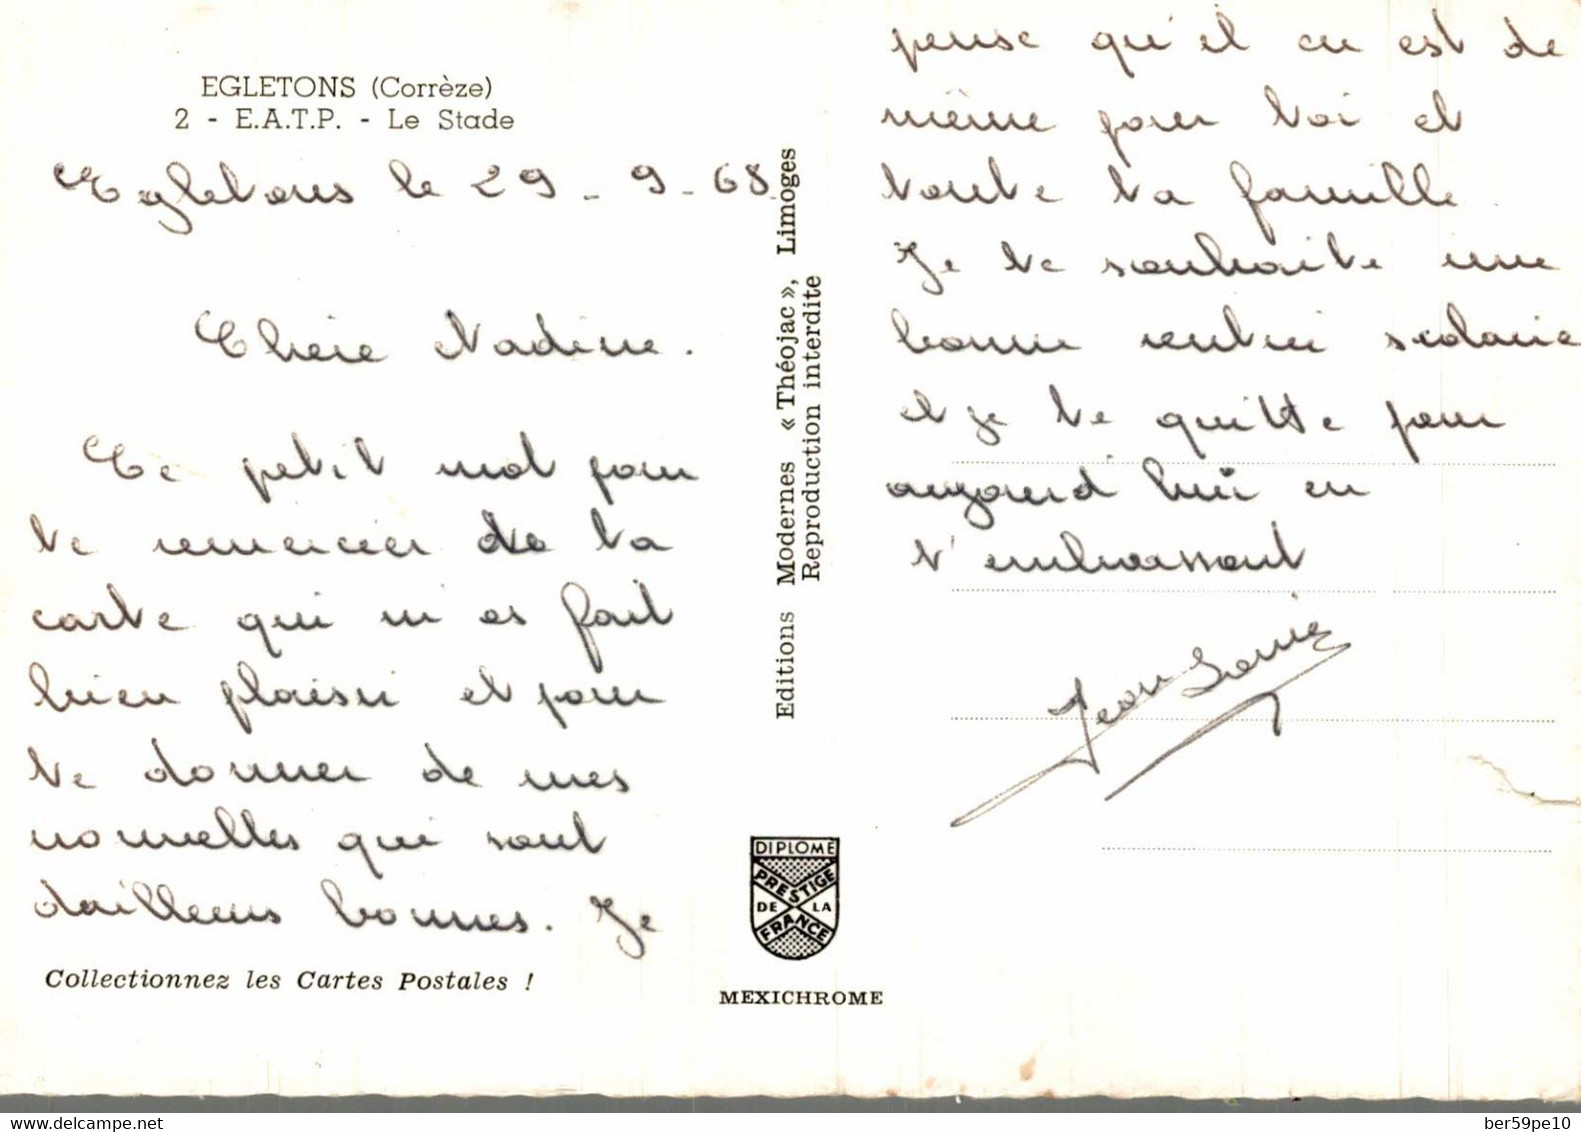 EGLETONS (Corrèze)
2 - E.A.T.P. - Le Stade
Egletons le 29 - 9 - 68
Chère Nadine.
Ce petit mot pour
te remercier de ta
carte qui m'as fait
bien plaisir et pour
te donner de mes
nouvelles qui sont
dailleurs bonnes. Je
Collectionnez les Cartes Postales !
Editions Modernes « Théojac », Limoges
Reproduction interdite
DIPLOME
PRESTIGE
DE LA
FRANCE
MEXICHROME
pense qu'il en est de
même pour toi et
toute ta famille.
Je te souhaite une
bonne rentrée scolaire
et je te quitte pour
aujourd'hui en
t'embrassant
Jean Louis
ber59pe10